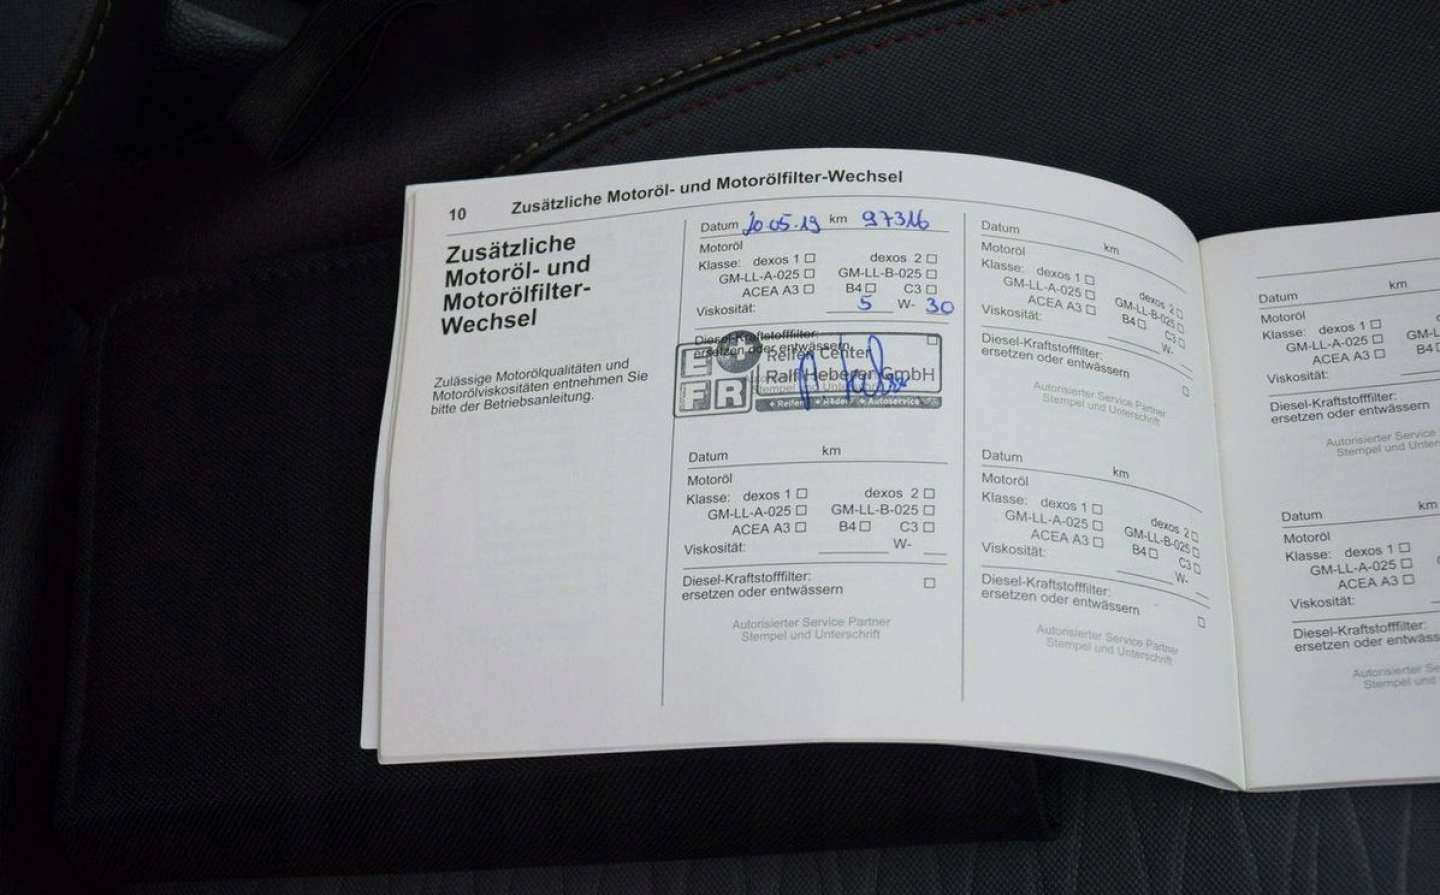 10 Zusätzliche Motoröl- und Motorölfilter-Wechsel
Zusätzliche
Motoröl- und
Motorölfilter-
Wechsel
Zulässige Motorölqualitäten und
Motorölviskositäten entnehmen Sie
bitte der Betriebsanleitung.
Datum 20.05.19 km 97316
Motoröl
Klasse: dexos 1 dexos 2
GM-LL-A-025 GM-LL-B-025
ACEA A3 B4 C3
Viskosität: 5 W- 30
Diesel-Kraftstofffilter:
ersetzen oder entwässern
EFR
Reifen Center
Ralf Heberer GmbH
Stempel und Unterschrift
Reifen Räder Autoservice
Datum km
Motoröl
Klasse: dexos 1 dexos 2
GM-LL-A-025 GM-LL-B-025
ACEA A3 B4 C3
Viskosität: W-
Diesel-Kraftstofffilter:
ersetzen oder entwässern
Autorisierter Service Partner
Stempel und Unterschrift
Datum km
Motoröl
Klasse: dexos 1 dexos 2
GM-LL-A-025 GM-LL-B-025
ACEA A3 B4 C3
Viskosität: W-
Diesel-Kraftstofffilter:
ersetzen oder entwässern
Autorisierter Service Partner
Stempel und Unterschrift
Datum km
Motoröl
Klasse: dexos 1 dexos 2
GM-LL-A-025 GM-LL-B-025
ACEA A3 B4 C3
Viskosität: W-
Diesel-Kraftstofffilter:
ersetzen oder entwässern
Autorisierter Service Partner
Stempel und Unterschrift
Datum km
Motoröl
Klasse: dexos 1
GM-LL-A-025 GM-L
ACEA A3 B4
Viskosität:
Diesel-Kraftstofffilter:
ersetzen oder entwässern
Autorisierter Service
Stempel und Unter
Datum km
Motoröl
Klasse: dexos 1
GM-LL-A-025
ACEA A3
Viskosität:
Diesel-Kraftstofffilter:
ersetzen oder entwäss
Autorisierter Se
Stempel und